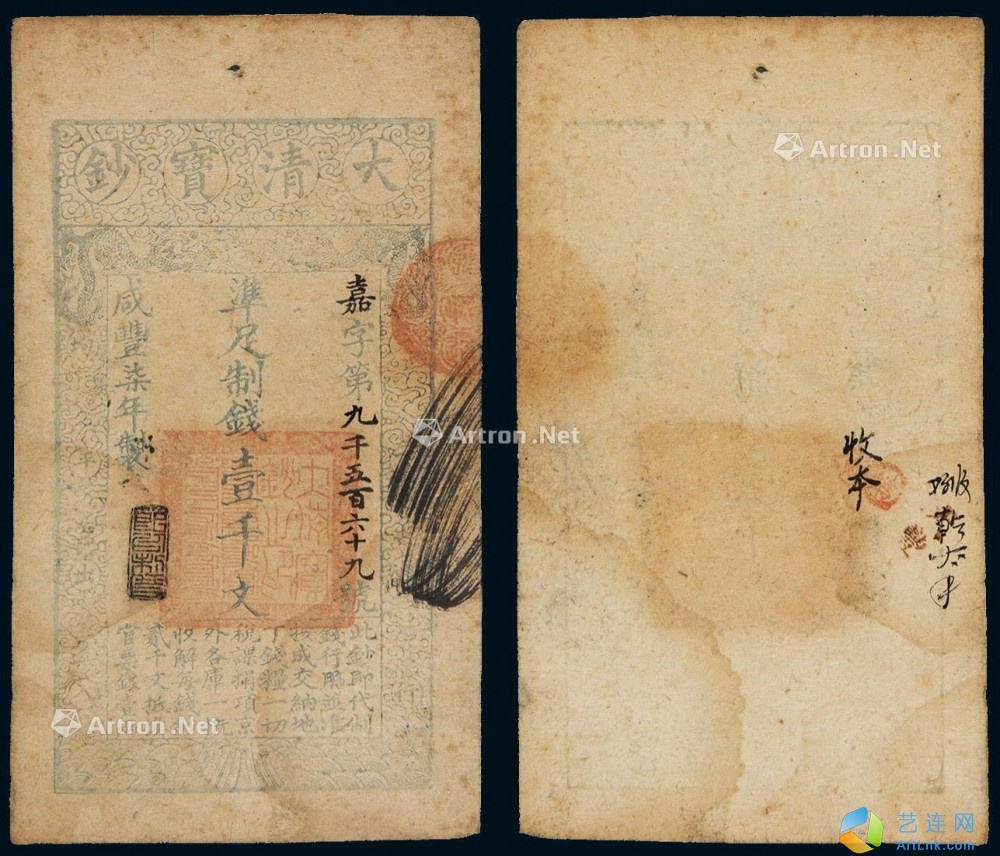 大清寶鈔
嘉字第九千五百六十九號
準足制錢壹千文
咸豐柒年製
此鈔即代制
錢行用並准
按成交納地
丁錢糧一切
稅課捐項京
外各庫一
收解每錢
貳千文抵
官票銀壹
收本
Artron.Net
Artron.Net
Artron.Net
Artron.Net
艺连网
ArtLnk.com